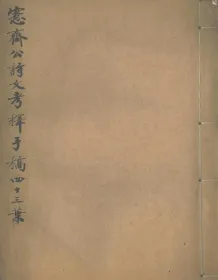 愙齋公詩文考釋手稿四十三葉